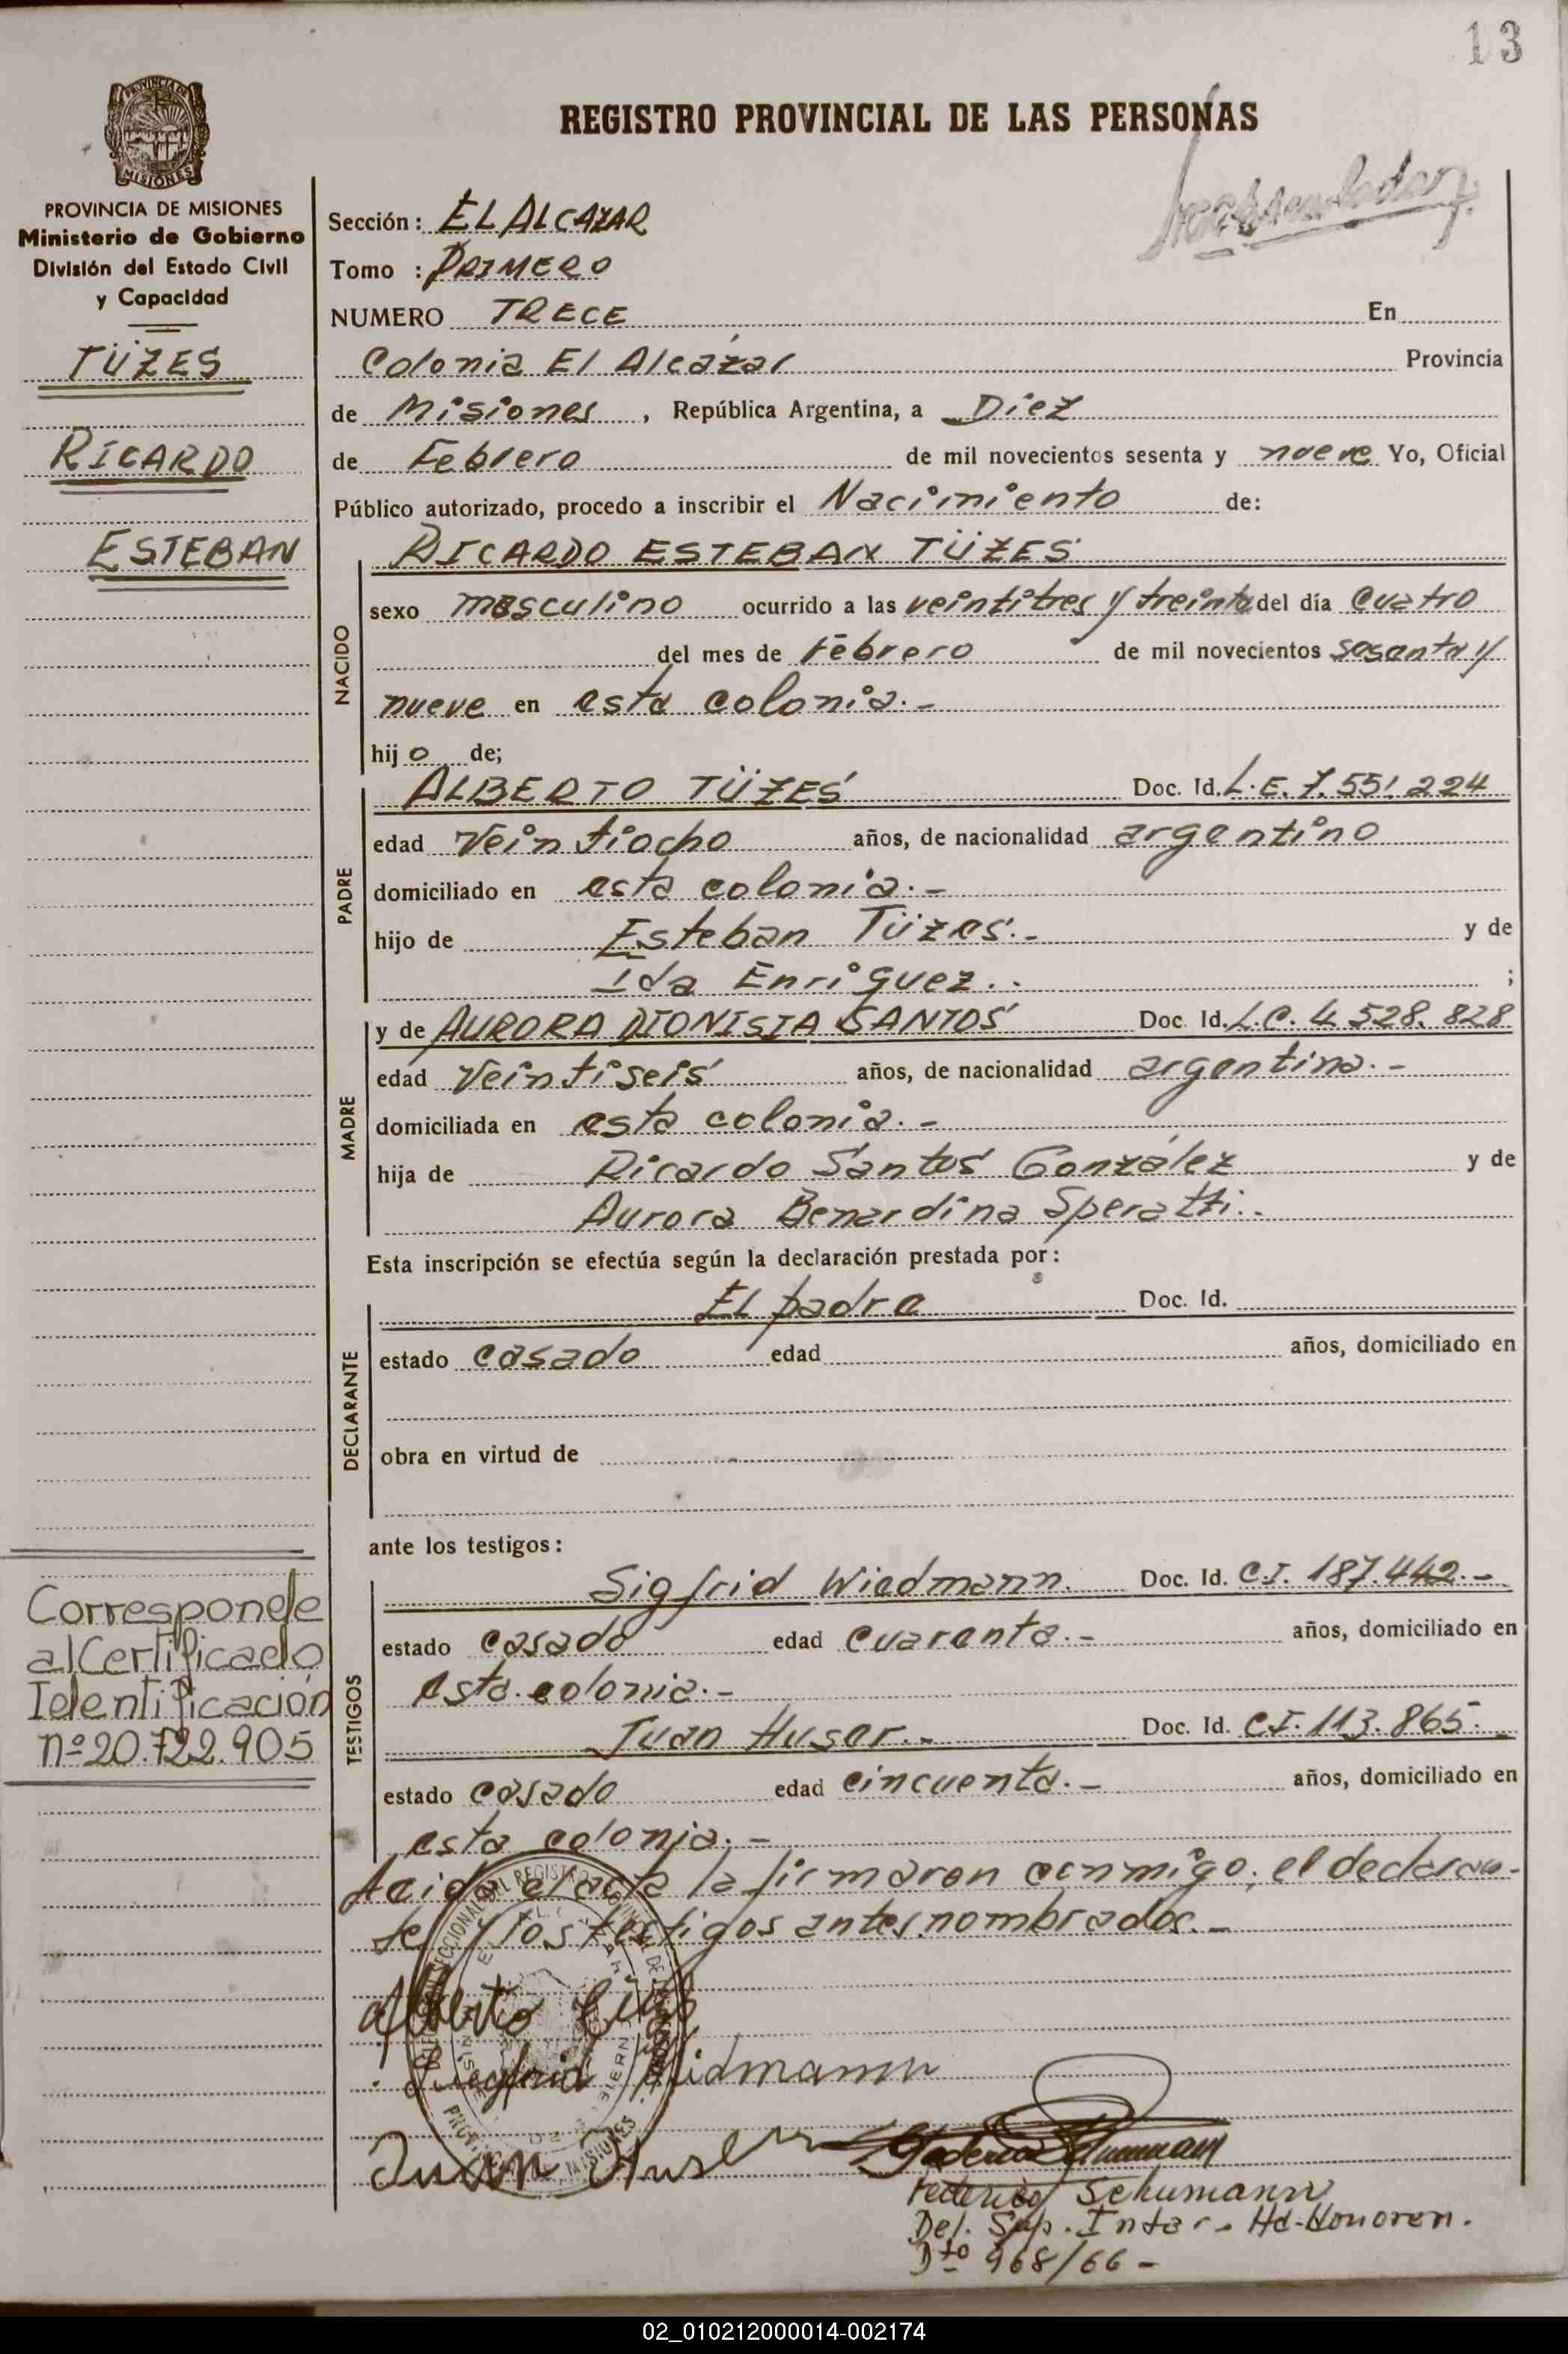 13
REGISTRO PROVINCIAL DE LAS PERSONAS
PROVINCIA DE MISIONES
MISIONES
PROVINCIA DE MISIONES
Ministerio de Gobierno
División del Estado Civil
y Capacidad
TÜZES
RICARDO
ESTEBAN
Sección: EL ALCAZAR
Tomo : PRIMERO
NUMERO TRECE En
Colonia El Alcázar Provincia
de Misiones, República Argentina, a Diez
de Febrero de mil novecientos sesenta y nueve Yo, Oficial
Público autorizado, procedo a inscribir el Nacimiento de:
NACIDO
RICARDO ESTEBAN TÜZES
sexo masculino ocurrido a las veintitres y treinta del día cuatro
del mes de Febrero de mil novecientos sesenta y
nueve en esta colonia.-
hijo de;
PADRE
ALBERTO TÜZES Doc. Id. L.E. 7.551.224
edad Veintiocho años, de nacionalidad argentino
domiciliado en esta colonia.-
hijo de Esteban Tüzes.- y de
Ida Enriquez.. ;
MADRE
y de AURORA DIONISIA SANTOS Doc. Id. L.C. 4.528.828
edad Veintiseis años, de nacionalidad argentina.-
domiciliada en esta colonia.-
hija de Ricardo Santos González y de
Aurora Benardina Speratti..
Esta inscripción se efectúa según la declaración prestada por:
DECLARANTE
El padre Doc. Id.
estado casado edad años, domiciliado en
obra en virtud de
ante los testigos:
TESTIGOS
Sigfrid Wiedmann. Doc. Id. C.I. 187.442.-
estado casado edad cuarenta.- años, domiciliado en
esta colonia.-
Juan Huser.- Doc. Id. C.I. 113.865.-
estado casado edad cincuenta.- años, domiciliado en
esta colonia.-
Leida el acta la firmaron conmigo, el declaran-
te y los testigos antes nombrados.-
Corresponde
al Certificado
Identificación
nº 20.722.905
Alberto
Juan Huser
Federico Schumann
Federico Schumann
Del. Sup. Inter. Ad-Honoren.
Dto 968/66-
02_010212000014-002174